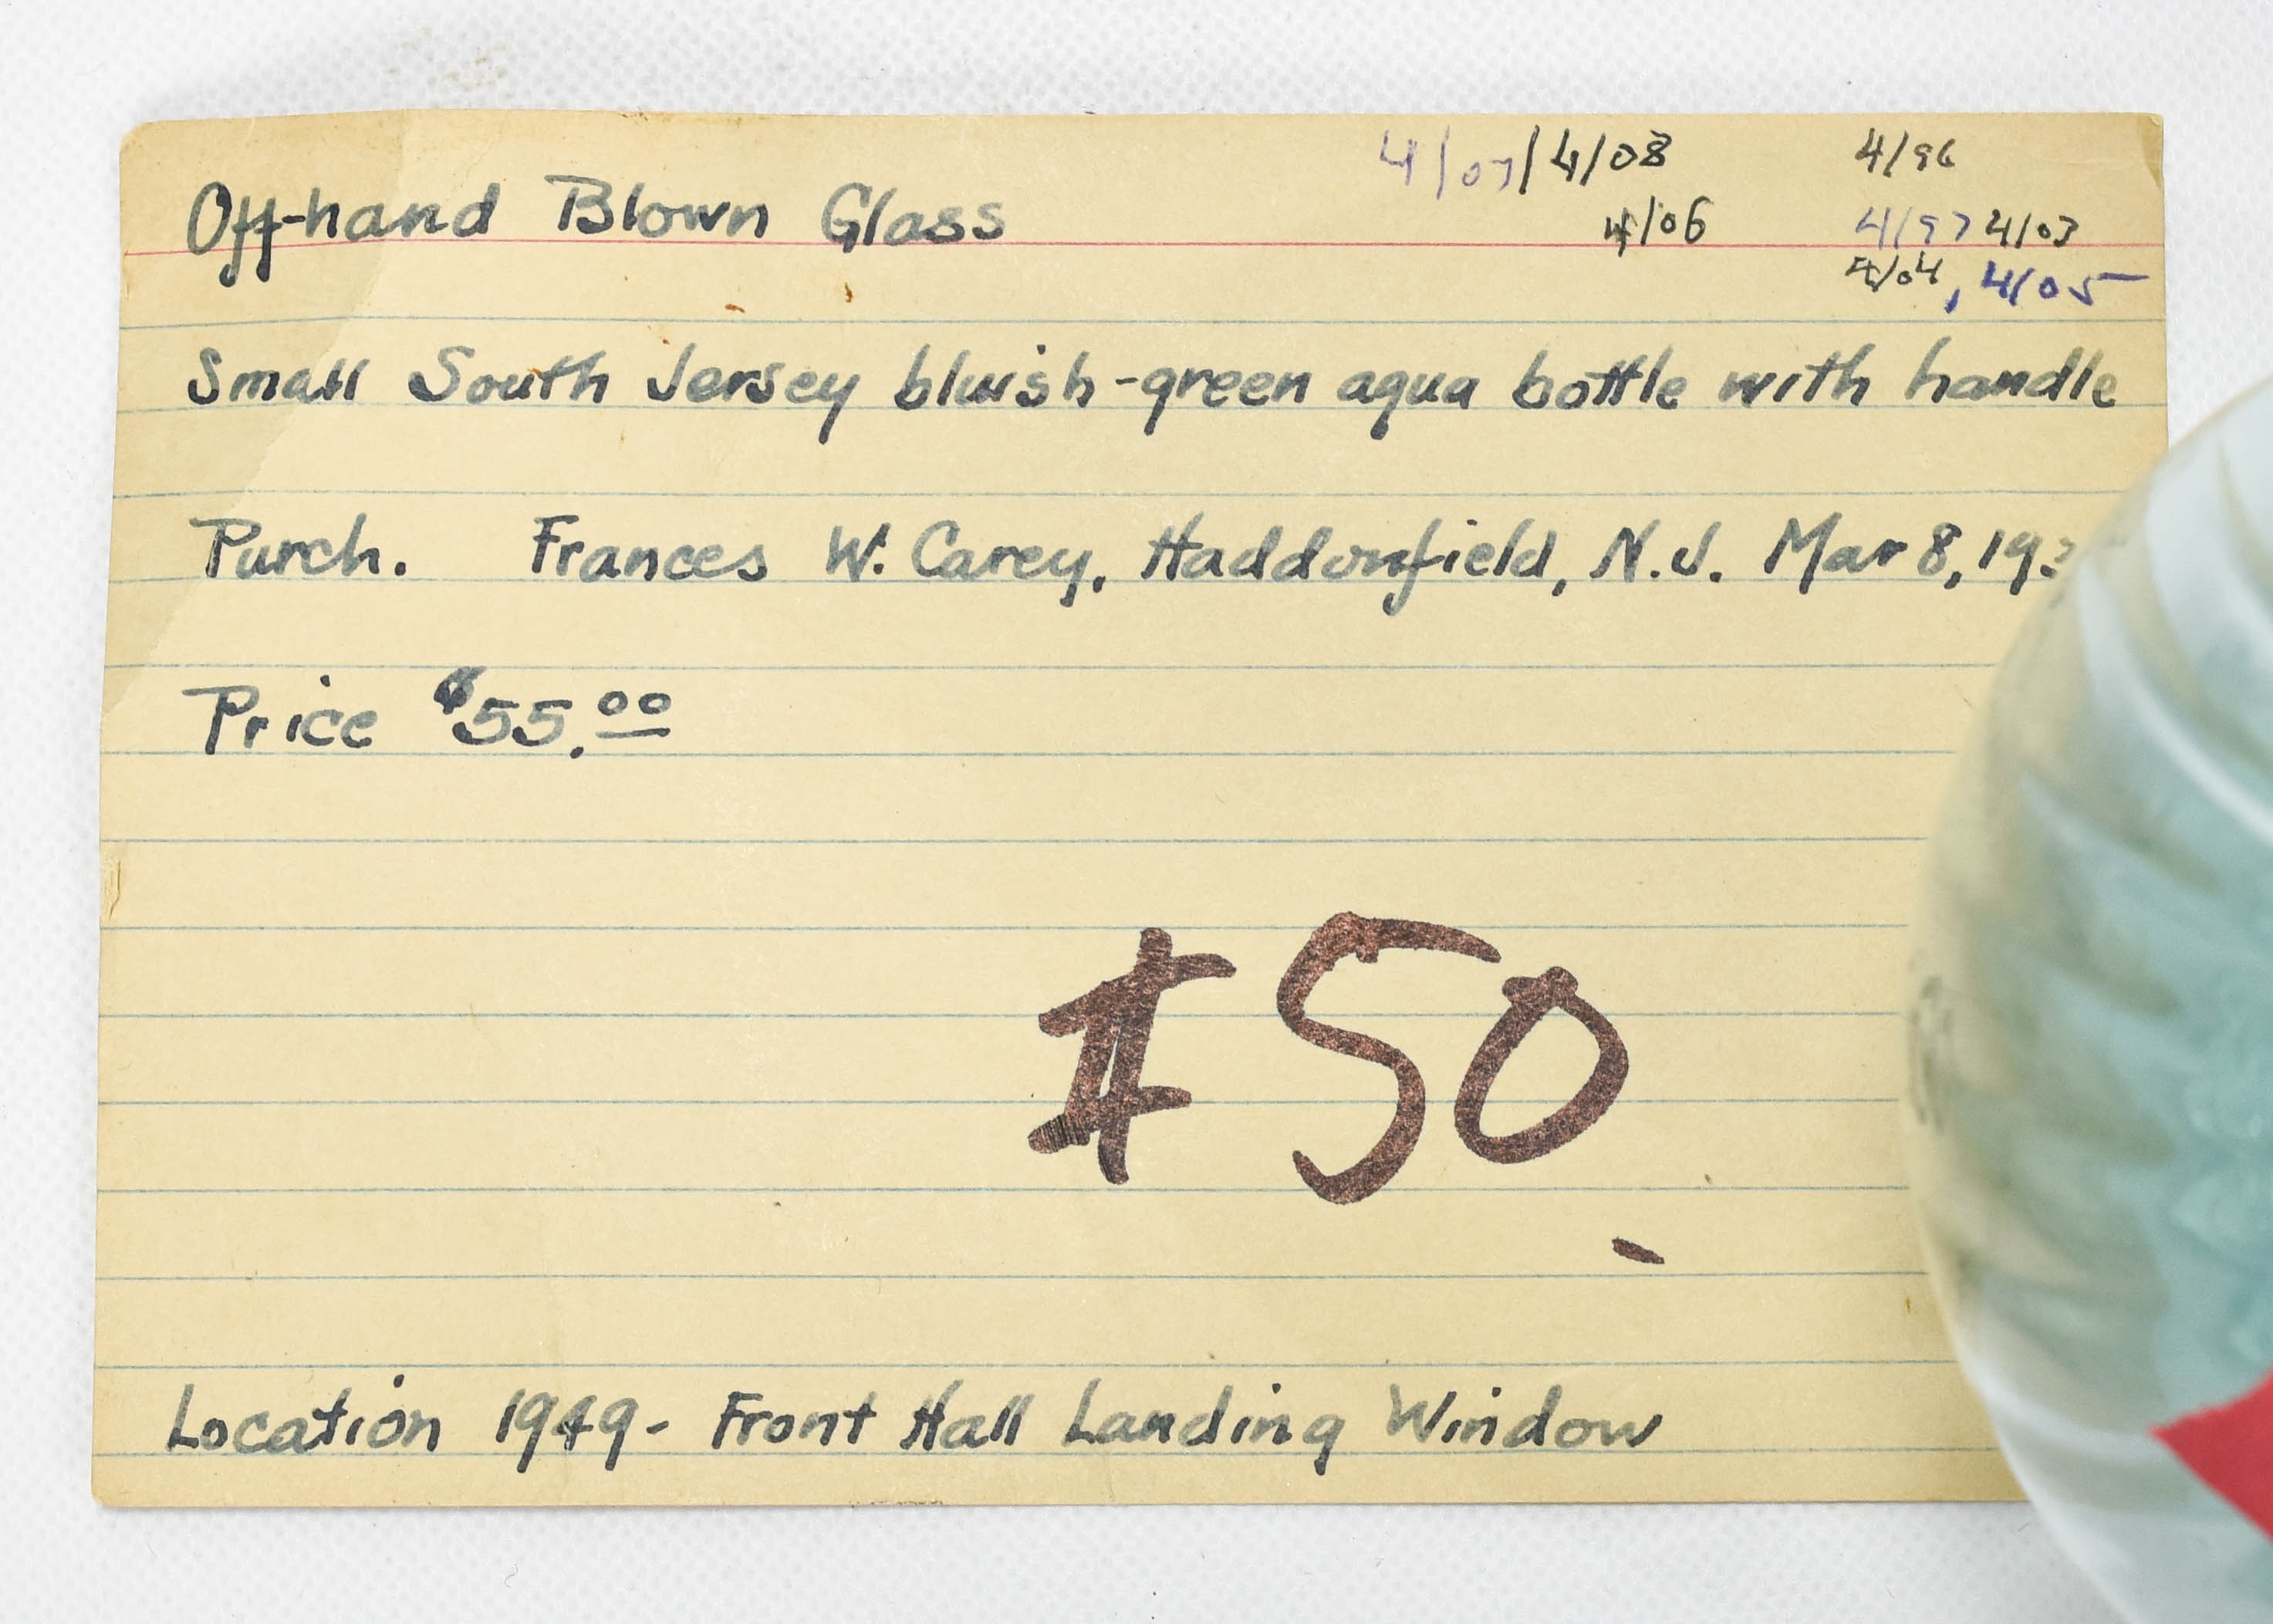 4/07/4/08 4/96
Off-hand Blown Glass 4/06 4/97 4/03
4/04, 4/05
Small South Jersey bluish-green aqua bottle with handle
Purch. Frances W. Carey, Haddonfield, N.J. Mar 8,
Price $55.00
$50
Location 1949- Front Hall Landing Window